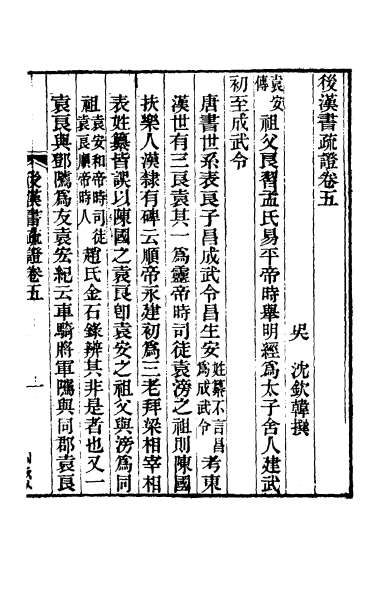 後漢書疏證卷五
吳 沈欽韓撰
袁安傳 祖父良習孟氏易平帝時舉明經爲太子舍人建武
初至成武令
唐書世系表良子昌成武令昌生安 姓纂不言昌爲成武令 考東
漢世有三良袁其一爲靈帝時司徒袁滂之祖則陳國
扶樂人漢隸有碑云順帝永建初爲三老拜梁相宰相
表姓纂皆誤以陳國之袁良卽袁安之祖父與滂爲同
祖 袁安和帝時司徒袁良順帝時人 趙氏金石錄辨其非是者也又一
袁良與鄧騭爲友袁宏紀云車騎將軍騭與同郡袁良
後漢書疏證卷五
一